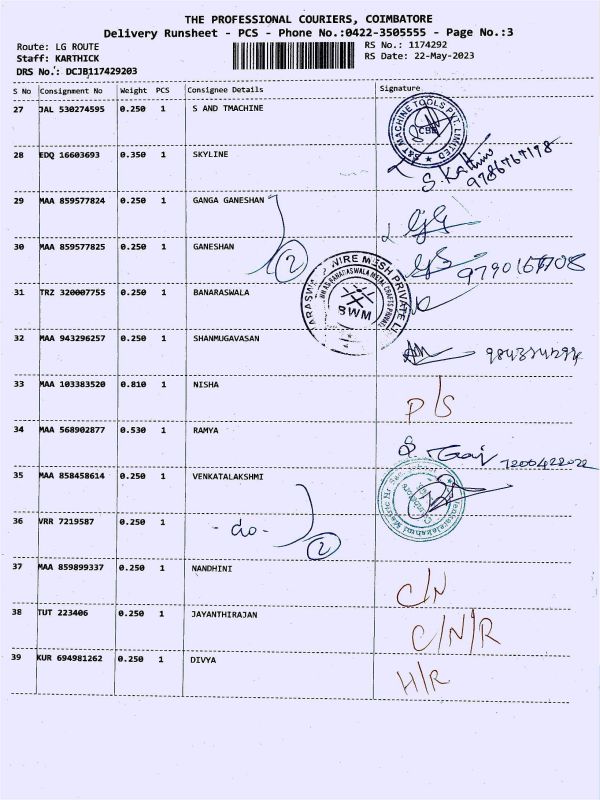 THE PROFESSIONAL COURIERS, COIMBATORE
Delivery Runsheet - PCS - Phone No.:0422-3505555 - Page No.:3
Route: LG ROUTE RS No.: 1174292
Staff: KARTHICK RS Date: 22-May-2023
DRS No.: DCJB117429203
S No Consignment No Weight PCS Consignee Details Signature
27 JAL 530274595 0.250 1 S AND TMACHINE
S&T MACHINE TOOLS PVT. LIMITED
CBE
28 EDQ 16603693 0.350 1 SKYLINE
9786767198
29 MAA 859577824 0.250 1 GANGA GANESHAN
30 MAA 859577825 0.250 1 GANESHAN 2
31 TRZ 320007755 0.250 1 BANARASWALA
WIRE MESH PRIVATE
BWM
32 MAA 943296257 0.250 1 SHANMUGAVASAN
33 MAA 103383520 0.810 1 NISHA P/S
34 MAA 568902877 0.530 1 RAMYA
7200422022
35 MAA 858458614 0.250 1 VENKATALAKSHMI
36 VRR 7219587 0.250 1 - do - 2
37 MAA 859899337 0.250 1 NANDHINI C/N
38 TUT 223406 0.250 1 JAYANTHIRAJAN C/N/R
39 KUR 694981262 0.250 1 DIVYA H/R